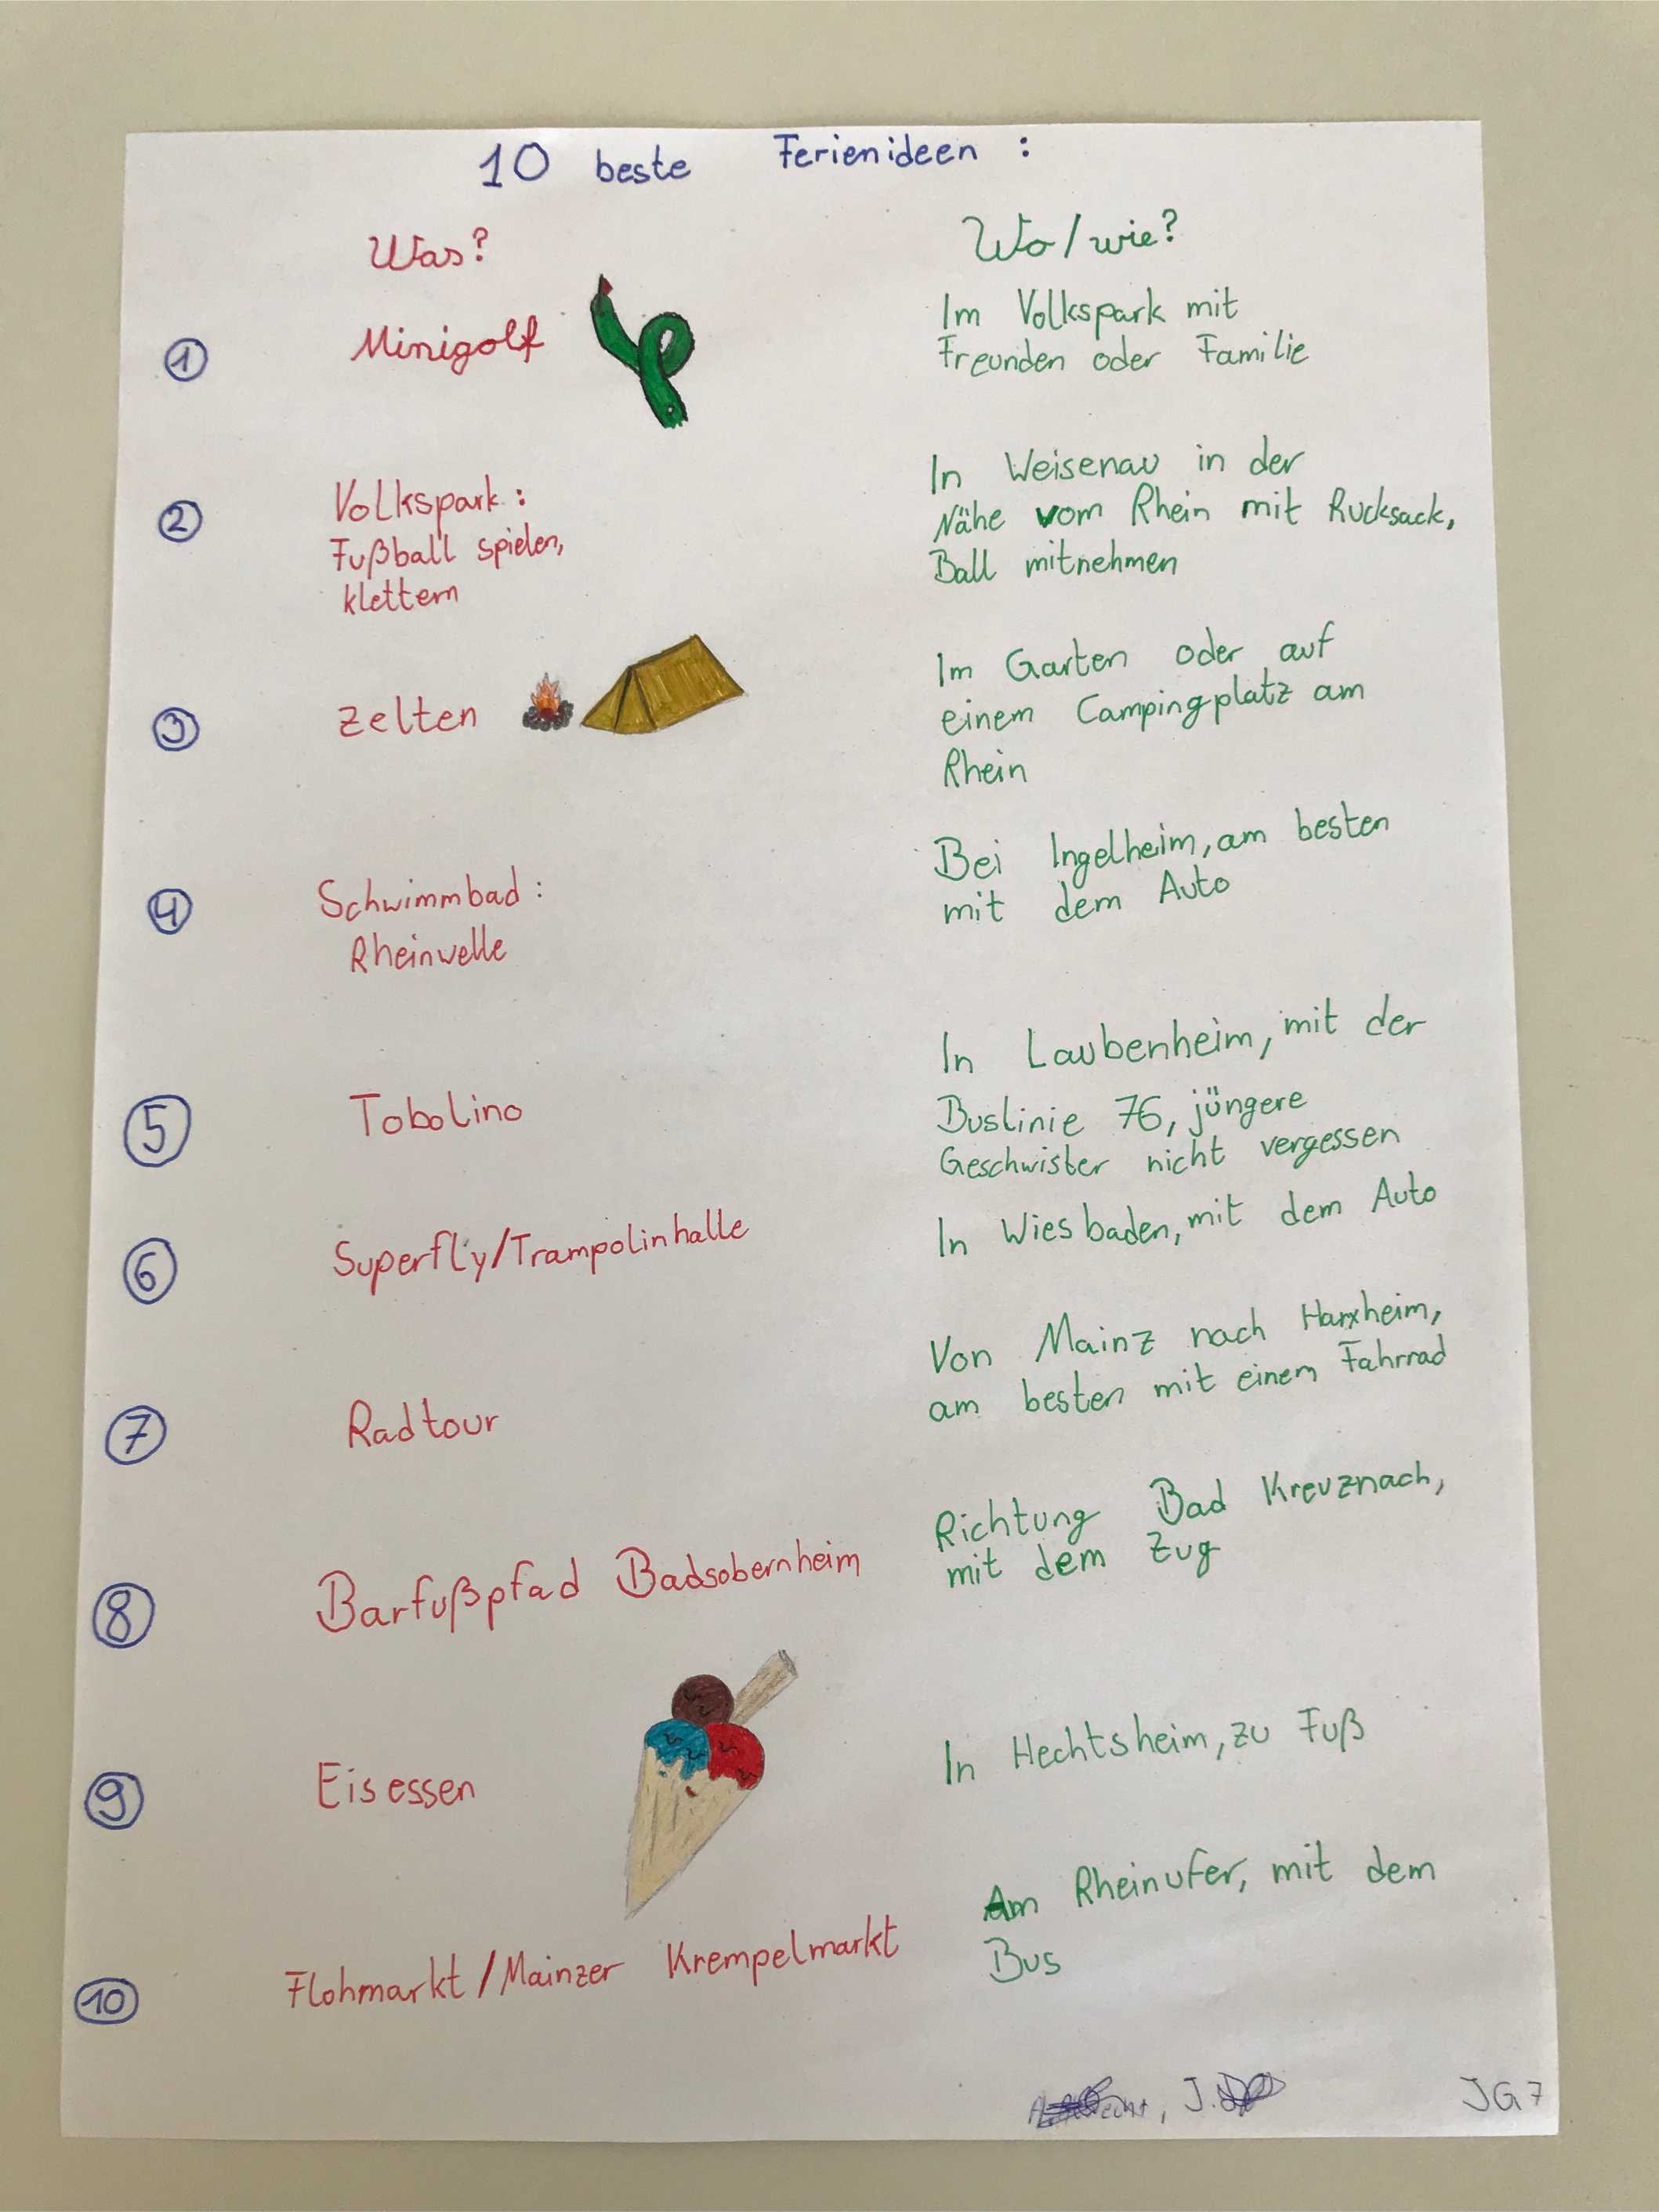 10 beste Ferienideen :
Was?
Wo/wie?
1
Minigolf
Im Volkspark mit
Freunden oder Familie
2
Volkspark:
Fußball spielen,
klettern
In Weisenau in der
Nähe vom Rhein mit Rucksack,
Ball mitnehmen
3
Zelten
Im Garten oder auf
einem Campingplatz am
Rhein
4
Schwimmbad:
Rheinwelle
Bei Ingelheim, am besten
mit dem Auto
5
Tobolino
In Laubenheim, mit der
Buslinie 76, jüngere
Geschwister nicht vergessen
6
Superfly/Trampolinhalle
In Wiesbaden, mit dem Auto
7
Radtour
Von Mainz nach Harxheim,
am besten mit einem Fahrrad
8
Barfußpfad Badsobernheim
Richtung Bad Kreuznach,
mit dem Zug
9
Eis essen
In Hechtsheim, zu Fuß
10
Flohmarkt/Mainzer Krempelmarkt
Am Rheinufer, mit dem
Bus
J.
JG7